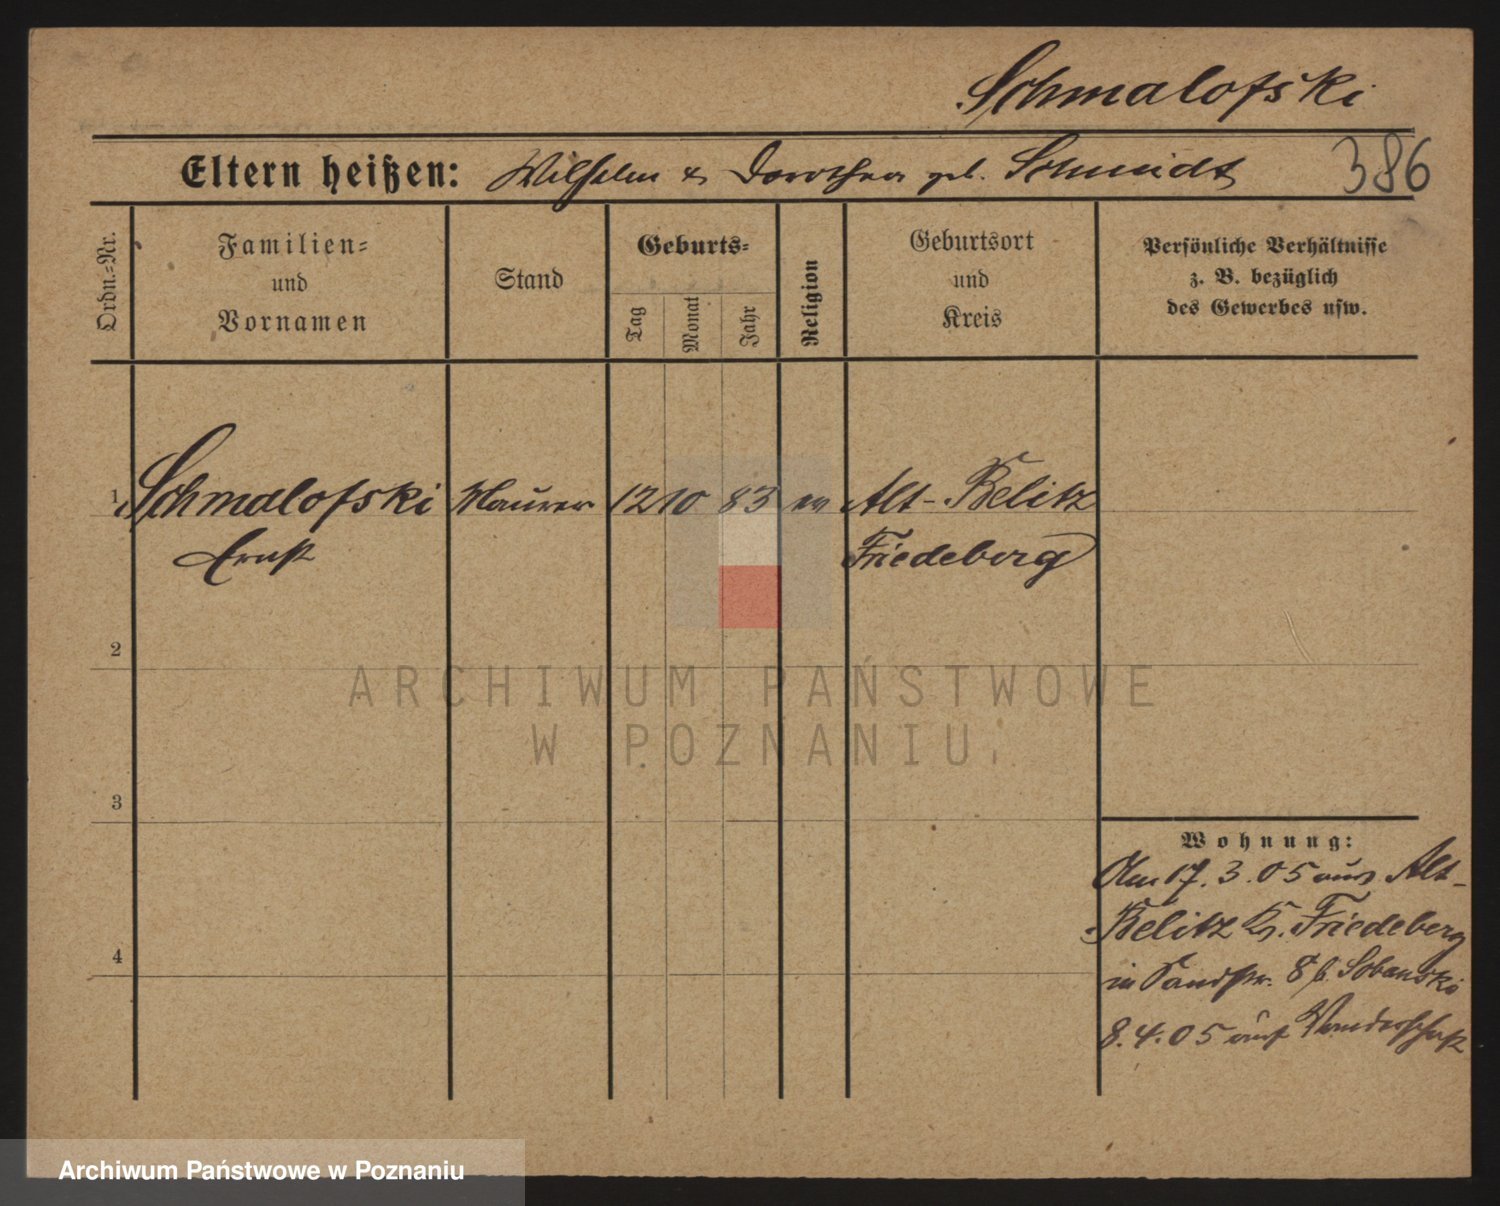 Schmalofski
Eltern heißen: Wilhelm & Dorothea geb. Schmidt 386
Ordn.-Nr.
Familien-
und
Vornamen
Stand
Geburts-
Tag
Monat
Jahr
Religion
Geburtsort
und
Kreis
Persönliche Verhältnisse
z. B. bezüglich
des Gewerbes usw.
1 Schmalofski Maurer 12 10 83 ev Alt-Belitz
Ernst Friedeberg
2
3
4
Wohnung:
Am 17.3.05 aus Alt-
Belitz Kr. Friedeberg
in Sandstr. 8 b. Sobanski
8.4.05 auf Wanderschaft
ARCHIWUM PAŃSTWOWE
W POZNANIU
Archiwum Państwowe w Poznaniu